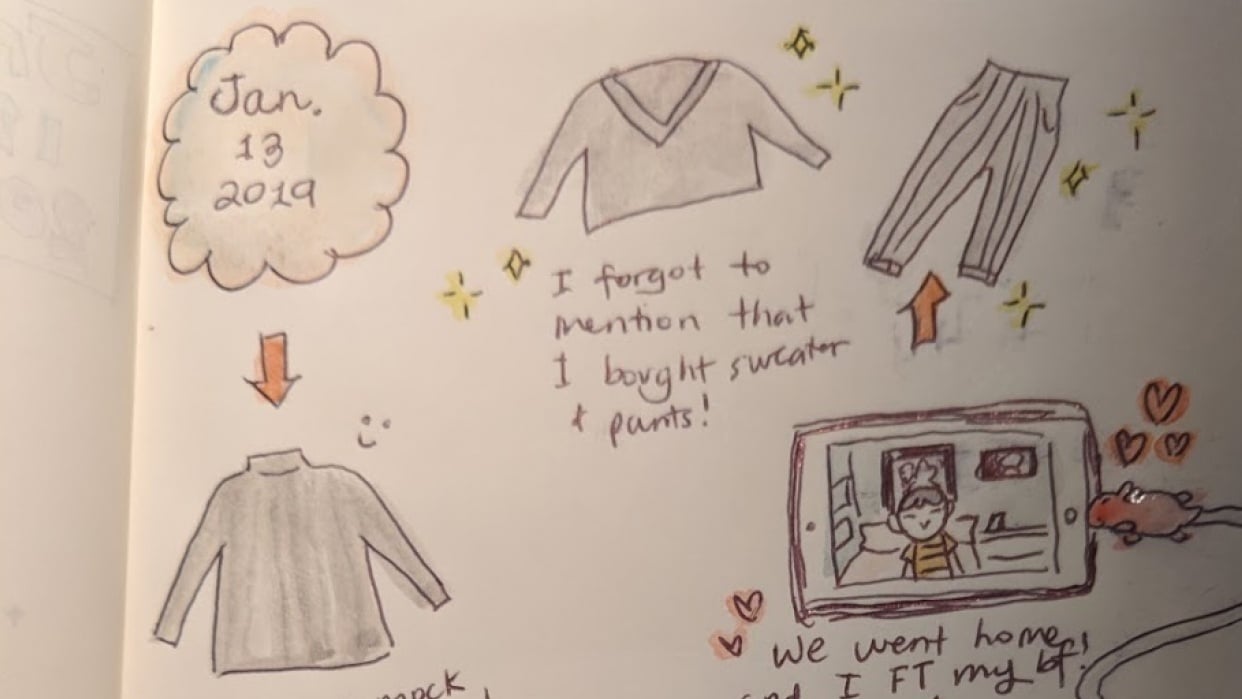 Jan.
13
2019
I forgot to
mention that
I bought sweater
& pants!
We went home,
and I FT my bf!
mock